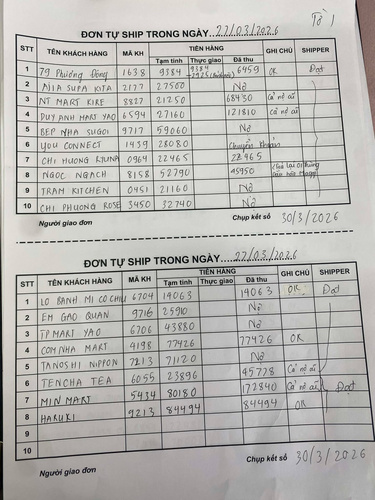 Tờ 1
ĐƠN TỰ SHIP TRONG NGÀY...27/03/2026
STT TÊN KHÁCH HÀNG MÃ KH TIỀN HÀNG GHI CHÚ SHIPPER
Tạm tính Thực giao Đã thu
1 79 Phương Đông 1638 9384 9384 - 2925 6459 OK Đạt
2 AJIA SUPA KITA 2177 27500 Nợ
3 NT MART KIRE 8827 21250 68430 Cả nợ cũ
4 DUY ANH MART YAO 6594 27160 121810 Cả nợ cũ
5 BEP NHA SUGOI 9717 59060 Nợ
6 YOU CONNECT 1439 28080 Chuyển khoản
7 CHI HUONG KIUNA 0964 22465 22465
8 NGOC NGACH 8158 52790 45950 (Trả lại 01 thùng
9 TRAM KITCHEN 0451 21160 Nợ
10 CHI PHUONG ROSE 3450 32740 Nợ
Người giao đơn Chụp kết sổ 30/3/2026
ĐƠN TỰ SHIP TRONG NGÀY...27/03/2026
STT TÊN KHÁCH HÀNG MÃ KH TIỀN HÀNG GHI CHÚ SHIPPER
Tạm tính Thực giao Đã thu
1 LO BANH MI CO CHIU 6704 19063 19063 OK Đạt
2 EM GAO QUAN 9716 25910 Nợ
3 TP MART YAO 6706 43880 Nợ
4 COM NHA MART 4198 77426 77426 OK
5 TANOSHI NIPPON 7213 71120 Nợ
6 TENCHA TEA 6055 23896 45778 Cả nợ cũ
7 MIN MART 5434 80180 172840 Cả nợ cũ Đạt
8 HARUKI 9213 84494 84494 OK
9
10
Người giao đơn Chụp kết sổ 30/3/2026